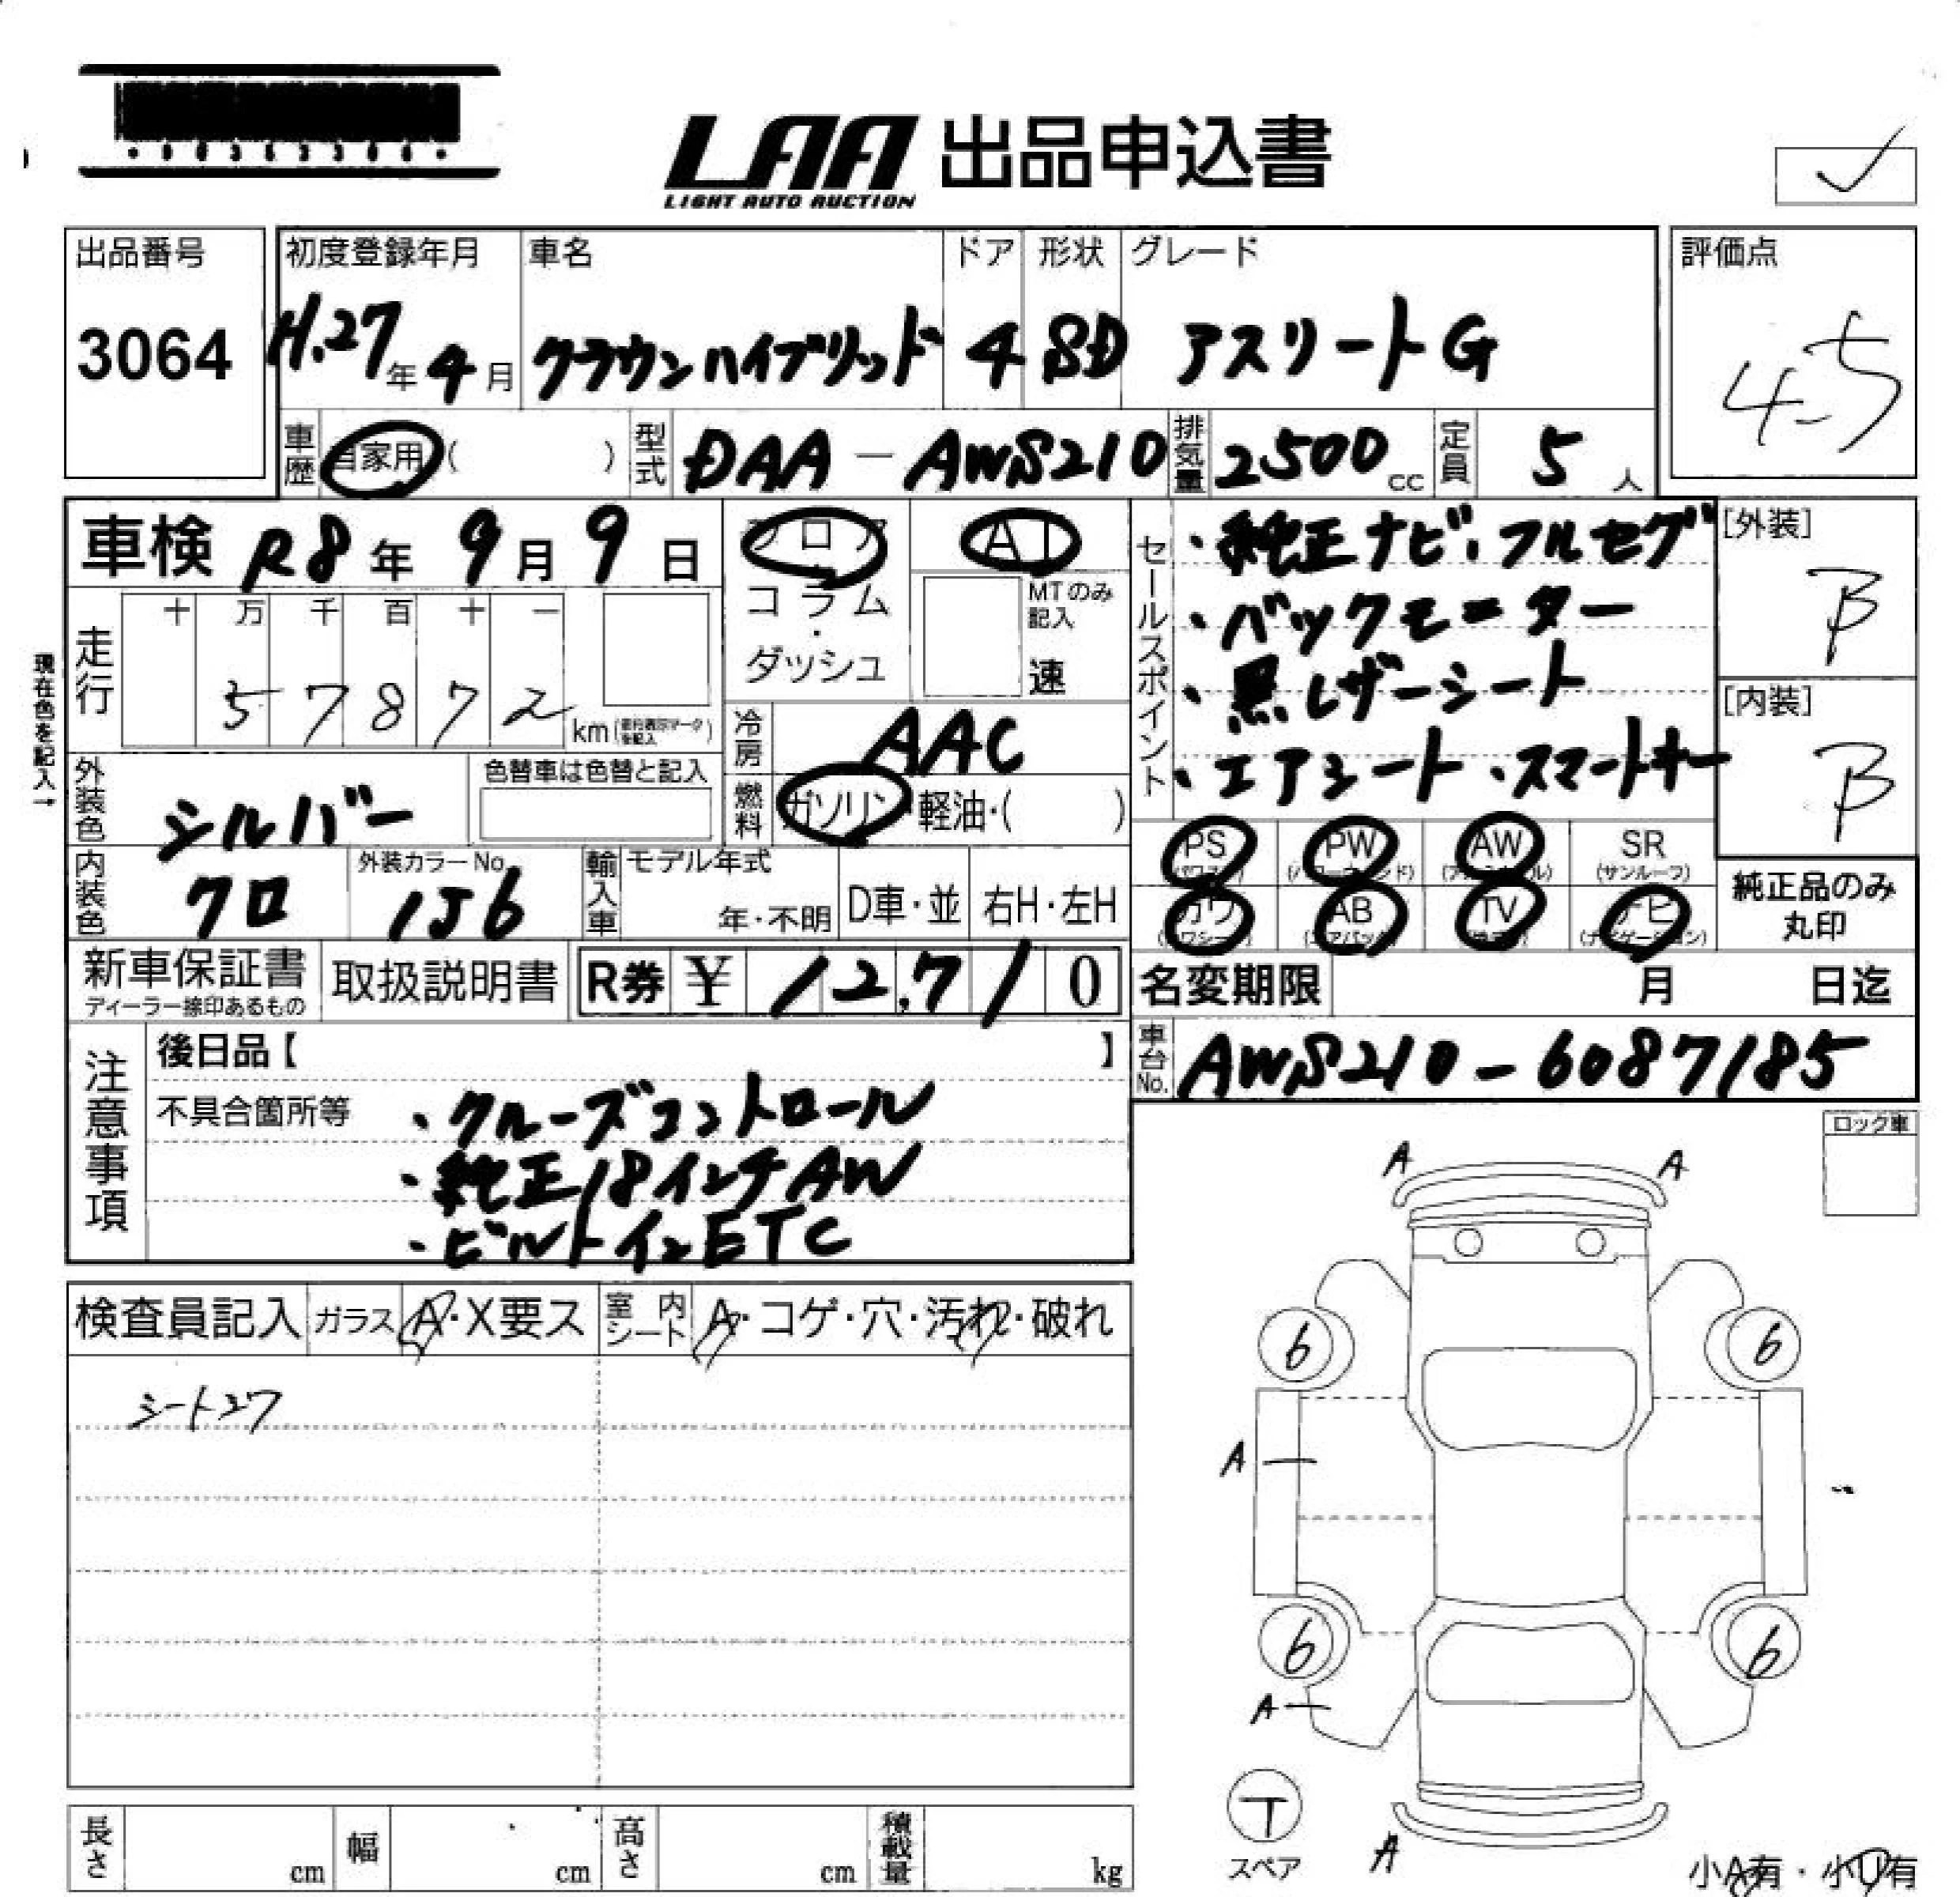 LAA 出品申込書
LIGHT AUTO AUCTION
出品番号
3064
初度登録年月
H.27年4月
車名
クラウンハイブリッド
ドア
4
形状
SD
グレード
アスリートG
評価点
4.5
車歴 自家用( )
型式 DAA-AWS210
排気量 2500cc
定員 5人
車検 R8年9月9日
フロア
コラム
・
ダッシュ
AT
MTのみ記入
速
セールスポイント
・純正ナビ・フルセグ
・バックモニター
・黒レザーシート
・エアシート・スマートキー
[外装]
B
[内装]
B
走行
十 万 千 百 十 一
5 7 8 7 2
km
現在色を記入→
冷房 AAC
燃料 ガソリン・軽油・( )
外装色 シルバー
色替車は色替と記入
内装色 クロ
外装カラーNo.
1J6
輸入車
モデル年式
年・不明
D車・並
右H・左H
PS PW AW SR
(サンルーフ)
カワ AB TV ナビ
純正品のみ
丸印
新車保証書
ディーラー捺印あるもの
取扱説明書
R券 ¥ 12,710
名変期限 月 日迄
車台No. AWS210-6087185
注意事項
後日品【 】
不具合箇所等
・クルーズコントロール
・純正18インチAW
・ビルトインETC
ロック車
検査員記入
ガラス A・X要ス
室内シート A・コゲ・穴・汚れ・破れ
A A
6 6
A
6 6
A
T
スペア
A
小A有・小U有
長さ cm
幅 cm
高さ cm
積載量 kg